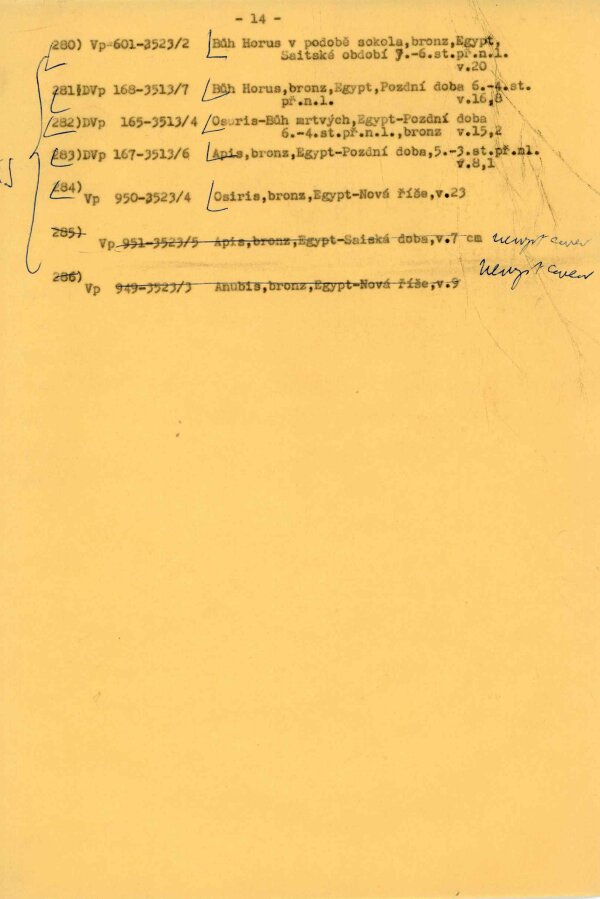 - 14 -
280) Vp=601-3523/2 Bůh Horus v podobě sokola,bronz,Egypt,
Saitské období 7.-6.st.př.n.l.
v.20
281)DVp 168-3513/7 Bůh Horus,bronz,Egypt,Pozdní doba 6.-4.st.
př.n.l. v.16,8
282)DVp 165-3513/4 Osuris-Bůh mrtvých,Egypt-Pozdní doba
6.-4.st.př.n.l.,bronz v.15,2
283)DVp 167-3513/6 Apis,bronz,Egypt-Pozdní doba,5.-3.st.př.nl.
v.8,1
284)
Vp 950-3523/4 Osiris,bronz,Egypt-Nová říše,v.23
285)
Vp 951-3523/5 Apis,bronz,Egypt-Saiská doba,v.7 cm
286)
Vp 949-3523/3 Anubis,bronz,Egypt-Nová říše,v.9